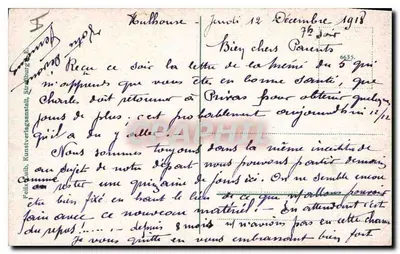 Mulhouse Jeudi 12 Décembre 1918
7h soir
Bien chers Parents
Reçu ce soir la lettre de la mémé du 5 qui
m'apprends que vous êtes en bonne santé, que
Charle doit retourner à Privas pour obtenir quelques
jours de plus; c'est probablement aujourd'hui 12/12
qu'il a du y aller!
Nous sommes toujours dans la même incertitude
au sujet de notre départ nous pouvons partir demain,
comme rester une quinzaine de jours ici. On ne semble encore
être bien fixé en haut lieu de ce que
faire avec ce nouveau matériel! En attendant c'est
du repos! depuis 8 mois n'avions pas eu cette chance
Je vous quitte en vous embrassant bien fort
6635
Felix Luib, Kunstverlagsanstalt, Strassburg